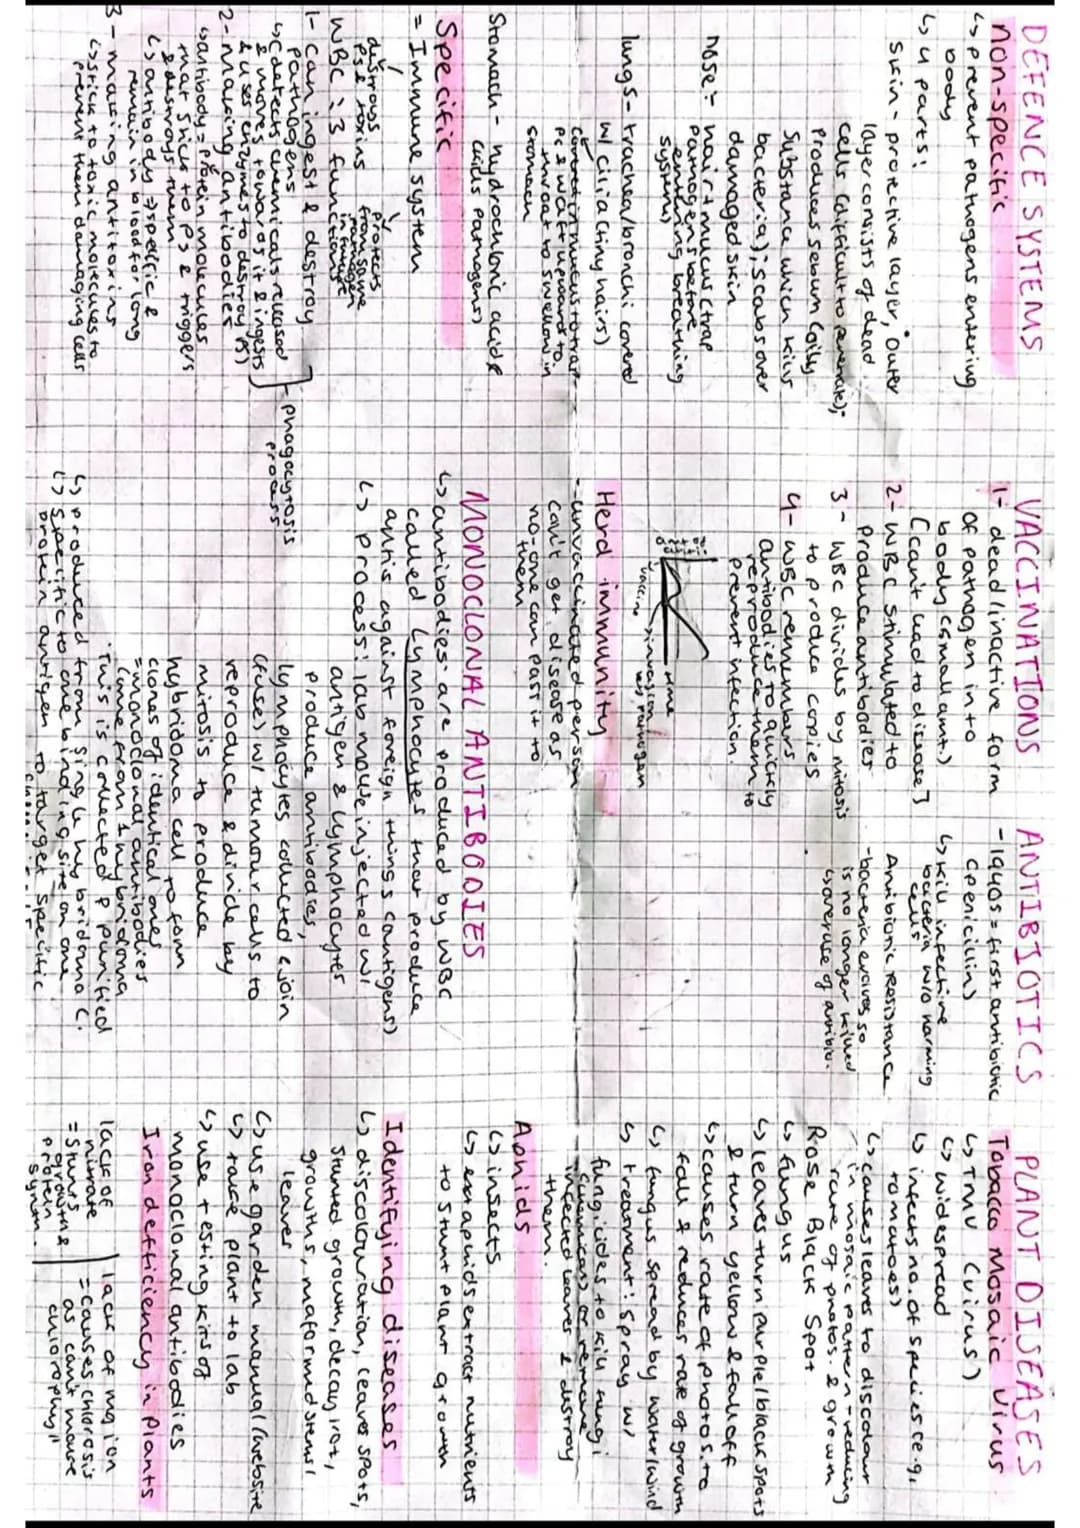 DEFENCE SYSTEMS
non-specific
↳ prevent pathogens entering
body
↳ 4 parts:
skin - protective layer, outer
layer consists of dead
cells (difficult to penetrate);
produces sebum (oily
substance which kills
bacteria); scabs over
damaged skin
nose:- hair + mucus (trap
pathogens before
entering breathing
system)
lungs - trachea/bronchi covered
w/ cilia (tiny hairs)
covered in mucus to trap
ps & waft upward to
throat to swallow in
stomach
Stomach - hydrochloric acid &
(acids pathogens)
Specific
= Immune system
destroys
ps & toxins
protects
from same
pathogen
in future
WBC: 3 functions
1- can ingest & destroy
pathogens
↳ detects chemicals released
& moves towards it & ingests
& uses enzymes to destroy (PS)
phagocytosis
process
2- making antibodies
↳ antibody = protein molecules
that sticks to ps & triggers
& destroys them
↳ antibody → specific &
remain in blood for long
3- making antitoxins
↳ stick to toxic molecules to
prevent them damaging cells
VACCINATIONS
1- dead/inactive form
of pathogen into
body (small amt.)
[can't lead to disease]
2- WBC stimulated to
produce antibodies
3- WBC divides by mitosis
to produce copies
4- WBC remembers
antibodies to quickly
reproduce them to
prevent infection.
vaccine
time
Herd immunity
- unvaccinated person
can't get disease as
no-one can pass it to
them
MONOCLONAL ANTIBODIES
↳ antibodies: are produced by WBC
called lymphocytes that produce
antis against foreign things (antigens)
↳ process: lab mouse injected w/
antigen & lymphocytes
produce antibodies,
lymphocytes collected & join
(fuse) w/ tumour cells to
reproduce & divide by
mitosis to produce
hybridoma cell to form
clones of identical ones
= monoclonal antibodies
(come from 1 hybridoma
This is collected & purified
↳ produced from single hybridoma c.
↳ specific to one binding site on one
protein antigen to target specific
ANTIBIOTICS
- 1940s = first antibiotic
(penicillin)
↳ kill infective
bacteria w/o harming
cells
Antibiotic resistance
- bacteria evolves so
is no longer killed
↳ overuse of antibio.
PLANT DISEASES
Tobacco Mosaic Virus
↳ TMV (virus)
↳ widespread
↳ infects no. of species (e.g.
tomatoes)
↳ causes leaves to discolour
in mosaic pattern - reducing
rate of photos. & growth
Rose Black Spot
↳ fungus
↳ leaves turn purple/black spots
& turn yellow & fall off
↳ causes rate of photos. to
fall & reduces rate of growth
↳ fungus spread by water/wind
↳ treatment: spray w/
fungicides to kill fungi
(chemicals) or remove
infected leaves & destroy
them.
Aphids
↳ insects
↳ ext aphids extract nutrients
to stunt plant growth
Identifying diseases
↳ discolouration, leaves spots,
stunted growth, decay/rot,
growths, malformed stems/
leaves
↳ use garden manual/website
↳ take plant to lab
↳ use testing kits of
monoclonal antibodies
Iron defficiency in plants
lack of
nitrate
= stunts
growth &
protein
synth.
lack of mg ion
= causes chlorosis
as can't make
chlorophyll